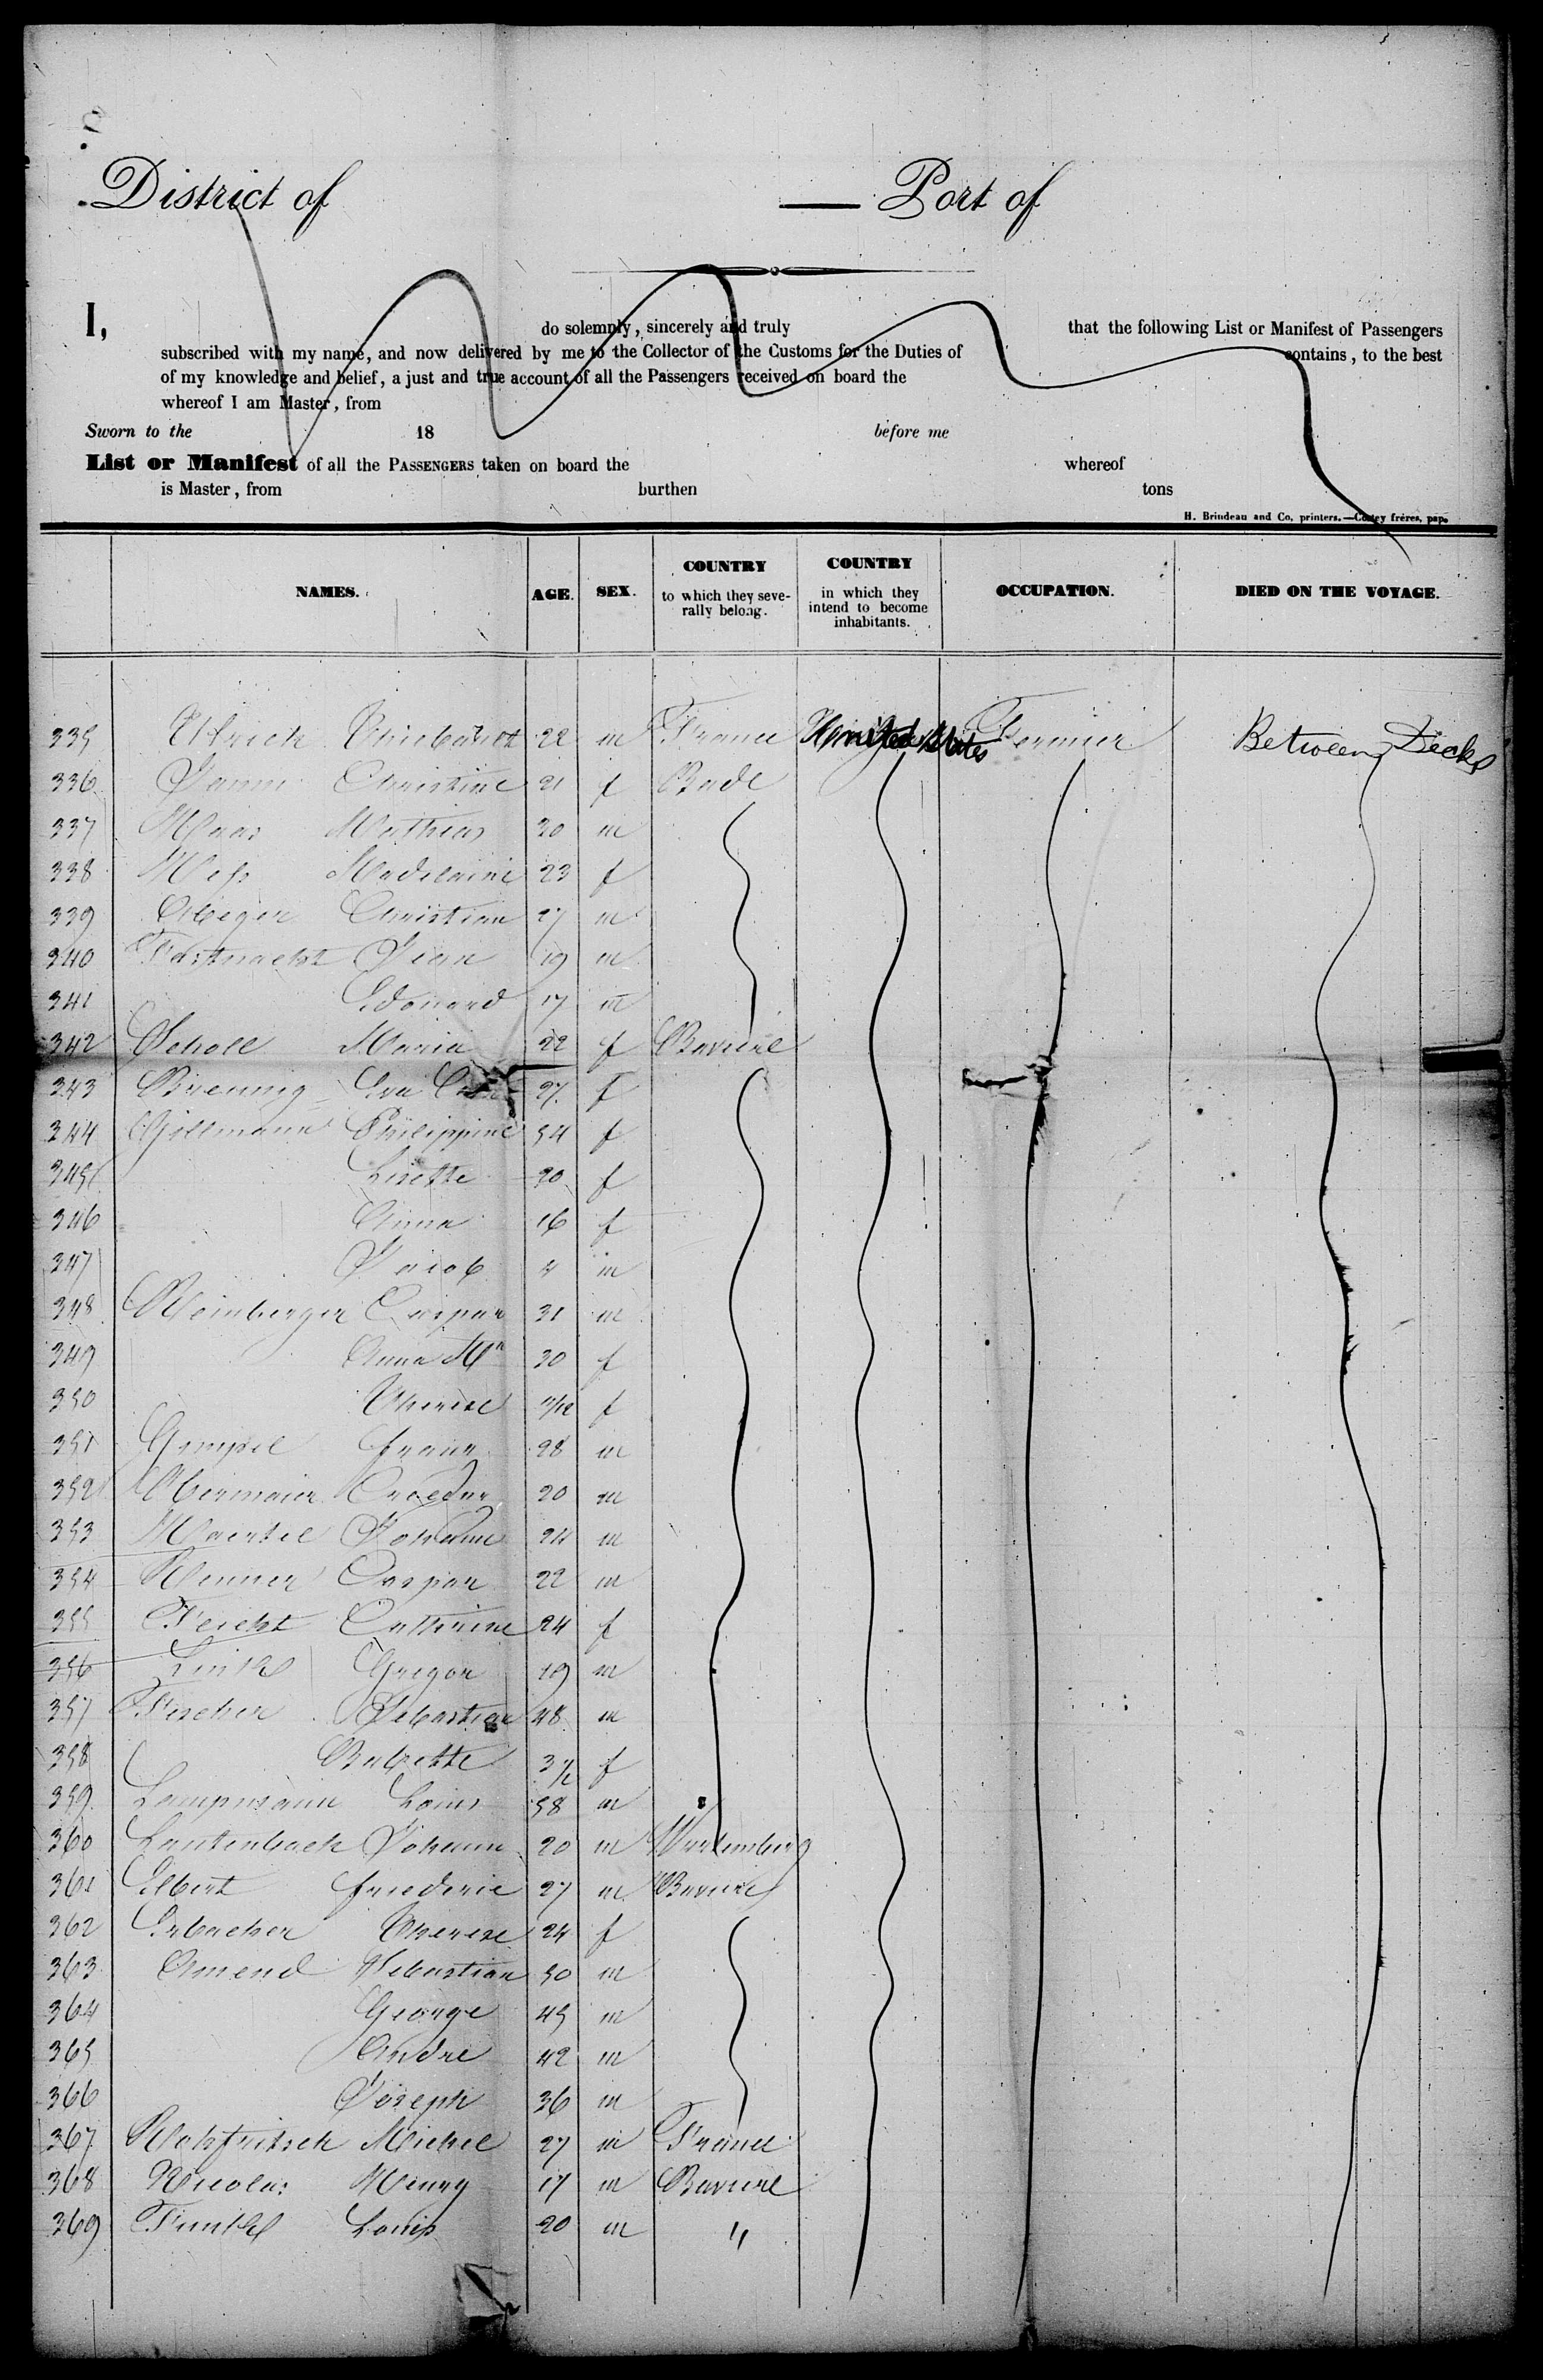 District of — Port of
I, do solemnly, sincerely and truly that the following List or Manifest of Passengers
subscribed with my name, and now delivered by me to the Collector of the Customs for the Duties of contains, to the best
of my knowledge and belief, a just and true account of all the Passengers received on board the
whereof I am Master, from
Sworn to the 18 before me
List or Manifest of all the PASSENGERS taken on board the whereof
is Master, from burthen tons
H. Brindeau and Co, printers.—Costey fréres, pap.
NAMES. AGE. SEX. COUNTRY to which they severally belong. COUNTRY in which they intend to become inhabitants. OCCUPATION. DIED ON THE VOYAGE.
335 Ulrich 22 m France United States Fermier Between Decks
336 Christine 21 f Bade
337 Maas Mathias 30 m
338 Hess Madelaine 23 f
339 Christian 27 m
340 Fastnacht Jean 19 m
341 Edouard 17 m
342 Scholl Maria 22 f Baviere
343 Breunig Eva 27 f
344 Gillmann Philippine 54 f
345 Lisette 20 f
346 Anna 16 f
347 Jacob 4 m
348 Weinberger Caspar 31 m
349 Anna Ma 30 f
350 Therese f
351 Gempel Franz 28 m
352 Obermaier 20 m
353 Maertel Johann 24 m
354 Renner Caspar 22 m
355 Feicht Catherine 24 f
356 Link Gregor 19 m
357 Fischer Sebastian 48 m
358 Babette 3 1/2 f
359 Lampmann Louis 58 m
360 Lautenbach Johann 20 m Wurtemberg
361 Elbert Frederic 27 m Baviere
362 Erbacher Therese 24 f
363 Amend Sebastian 50 m
364 George 45 m
365 Andre 42 m
366 Joseph 36 m
367 Michel 27 m France
368 Nicolas Henry 17 m Baviere
369 Funk Louis 20 m "